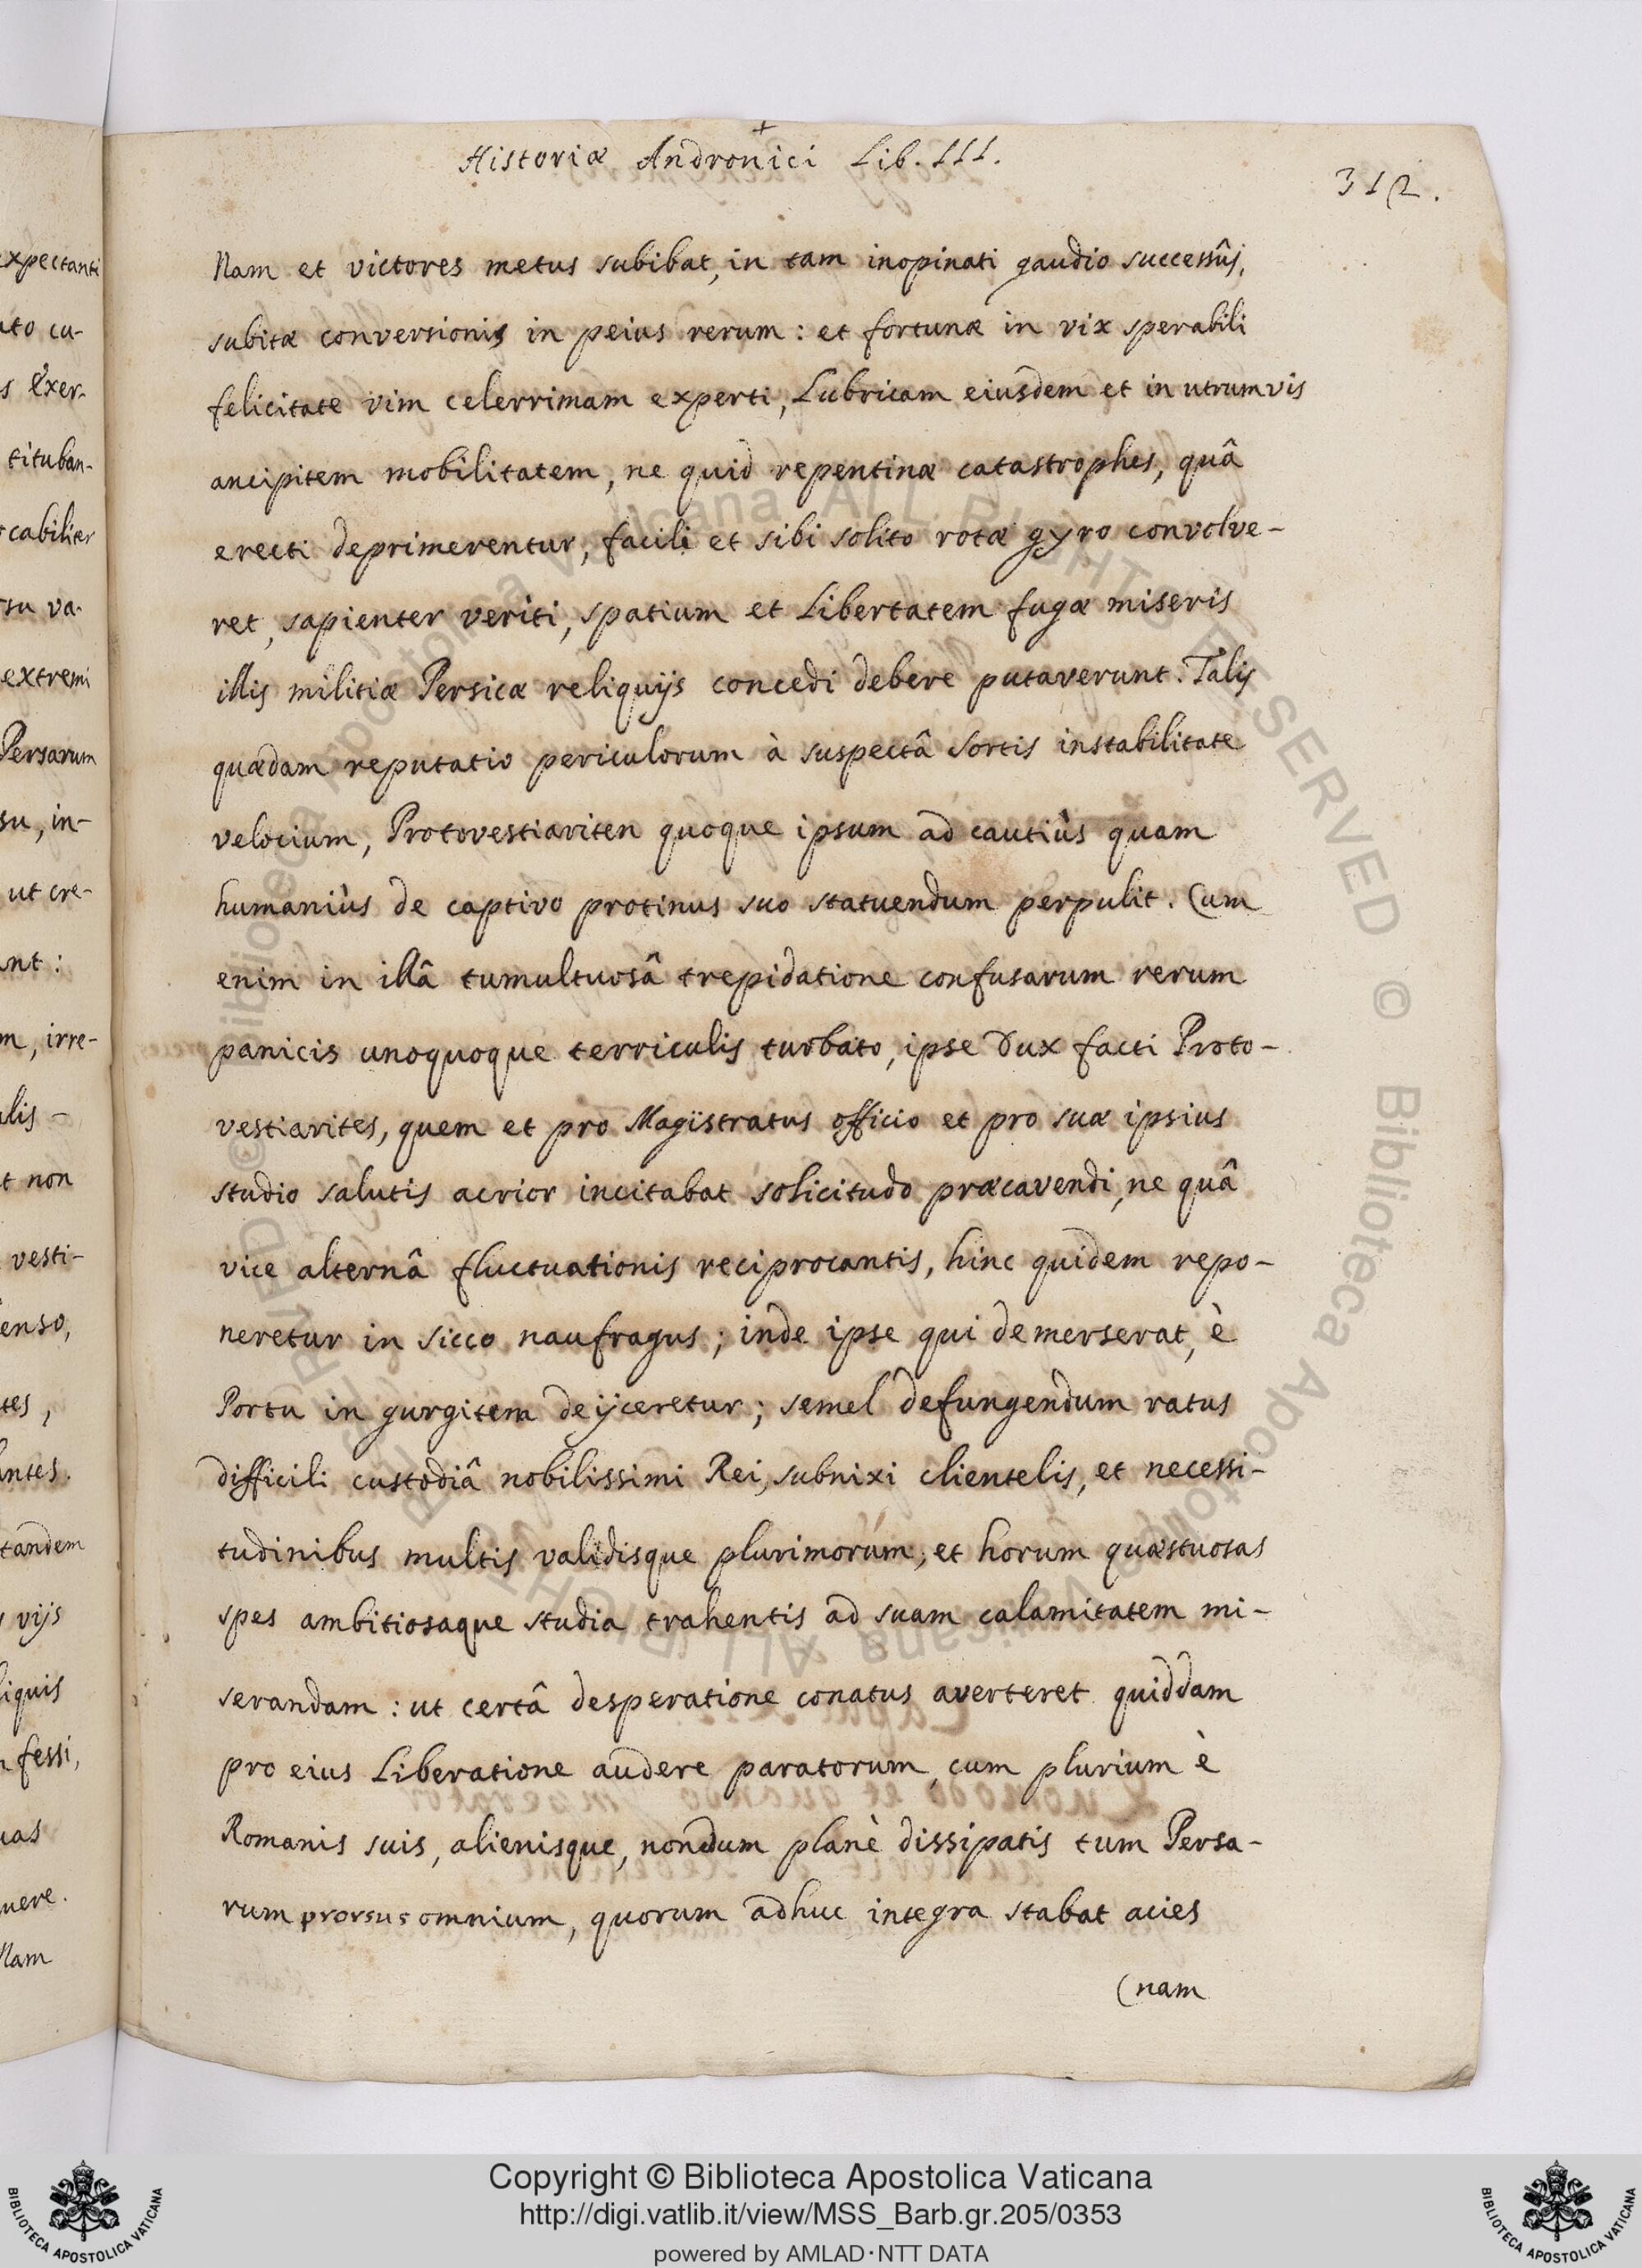 Historiæ Andronici Lib. III.
312.
Nam et victores metus subibat, in tam inopinati gaudio successûs,
subitæ conversionis in peius rerum: et fortunæ in vix sperabili
felicitate vim celerrimam experti, Lubricam eiusdem et in utrumvis
ancipitem mobilitatem, ne quid repentinæ catastrophes, quâ
erecti deprimerentur, facili et sibi solito rotæ gyro convolve-
ret, sapienter veriti, spatium et Libertatem fugæ miseris
illis militiæ Persicæ reliquijs concedi debere putaverunt. Talis
quædam reputatio periculorum à suspectâ Sortis instabilitate
velocium, Protovestiariten quoque ipsum ad cautiùs quam
humaniùs de captivo protinus suo statuendum perpulit. Cum
enim in illâ tumultuosâ trepidatione confusarum rerum
panicis unoquoque terriculis turbato, ipse Dux facti Proto-
vestiarites, quem et pro Magistratus officio et pro suæ ipsius
studio salutis acrior incitabat solicitudo præcavendi, ne quâ
vice alternâ fluctuationis reciprocantis, hinc quidem repo-
neretur in Sicco naufragus; inde ipse qui demerserat, è
Portu in gurgitem deijceretur; semel defungendum ratus
difficili custodiâ nobilissimi Rei, subnixi clientelis, et necessi-
tudinibus multis validisque plurimorum, et horum quæstuosas
spes ambitiosaque studia trahentis ad suam calamitatem mi-
serandam: ut certâ desperatione conatus averteret quiddam
pro eius Liberatione audere paratorum, cum plurium è
Romanis suis, alienisque, nondum planè dissipatis tum Persa-
rum prorsus omnium, quorum adhuc integra stabat acies
(nam
expectanti
ato cu-
s exer-
tituban-
ocabiliter
rsu va-
extremi
Persarum
su, in-
ut cre-
ant:
m, irre-
alis-
t non
vesti-
enso,
tes,
antes.
tandem
vijs
liquis
n fessi,
uas
uere.
Nam
© Biblioteca Apostolica Vaticana ALL RIGHTS RESERVED © Biblioteca Apostolica Vaticana ALL RIGHTS RESERVED
BIBLIOTECA APOSTOLICA VATICANA
Copyright © Biblioteca Apostolica Vaticana
http://digi.vatlib.it/view/MSS_Barb.gr.205/0353
powered by AMLAD·NTT DATA
BIBLIOTECA APOSTOLICA VATICANA